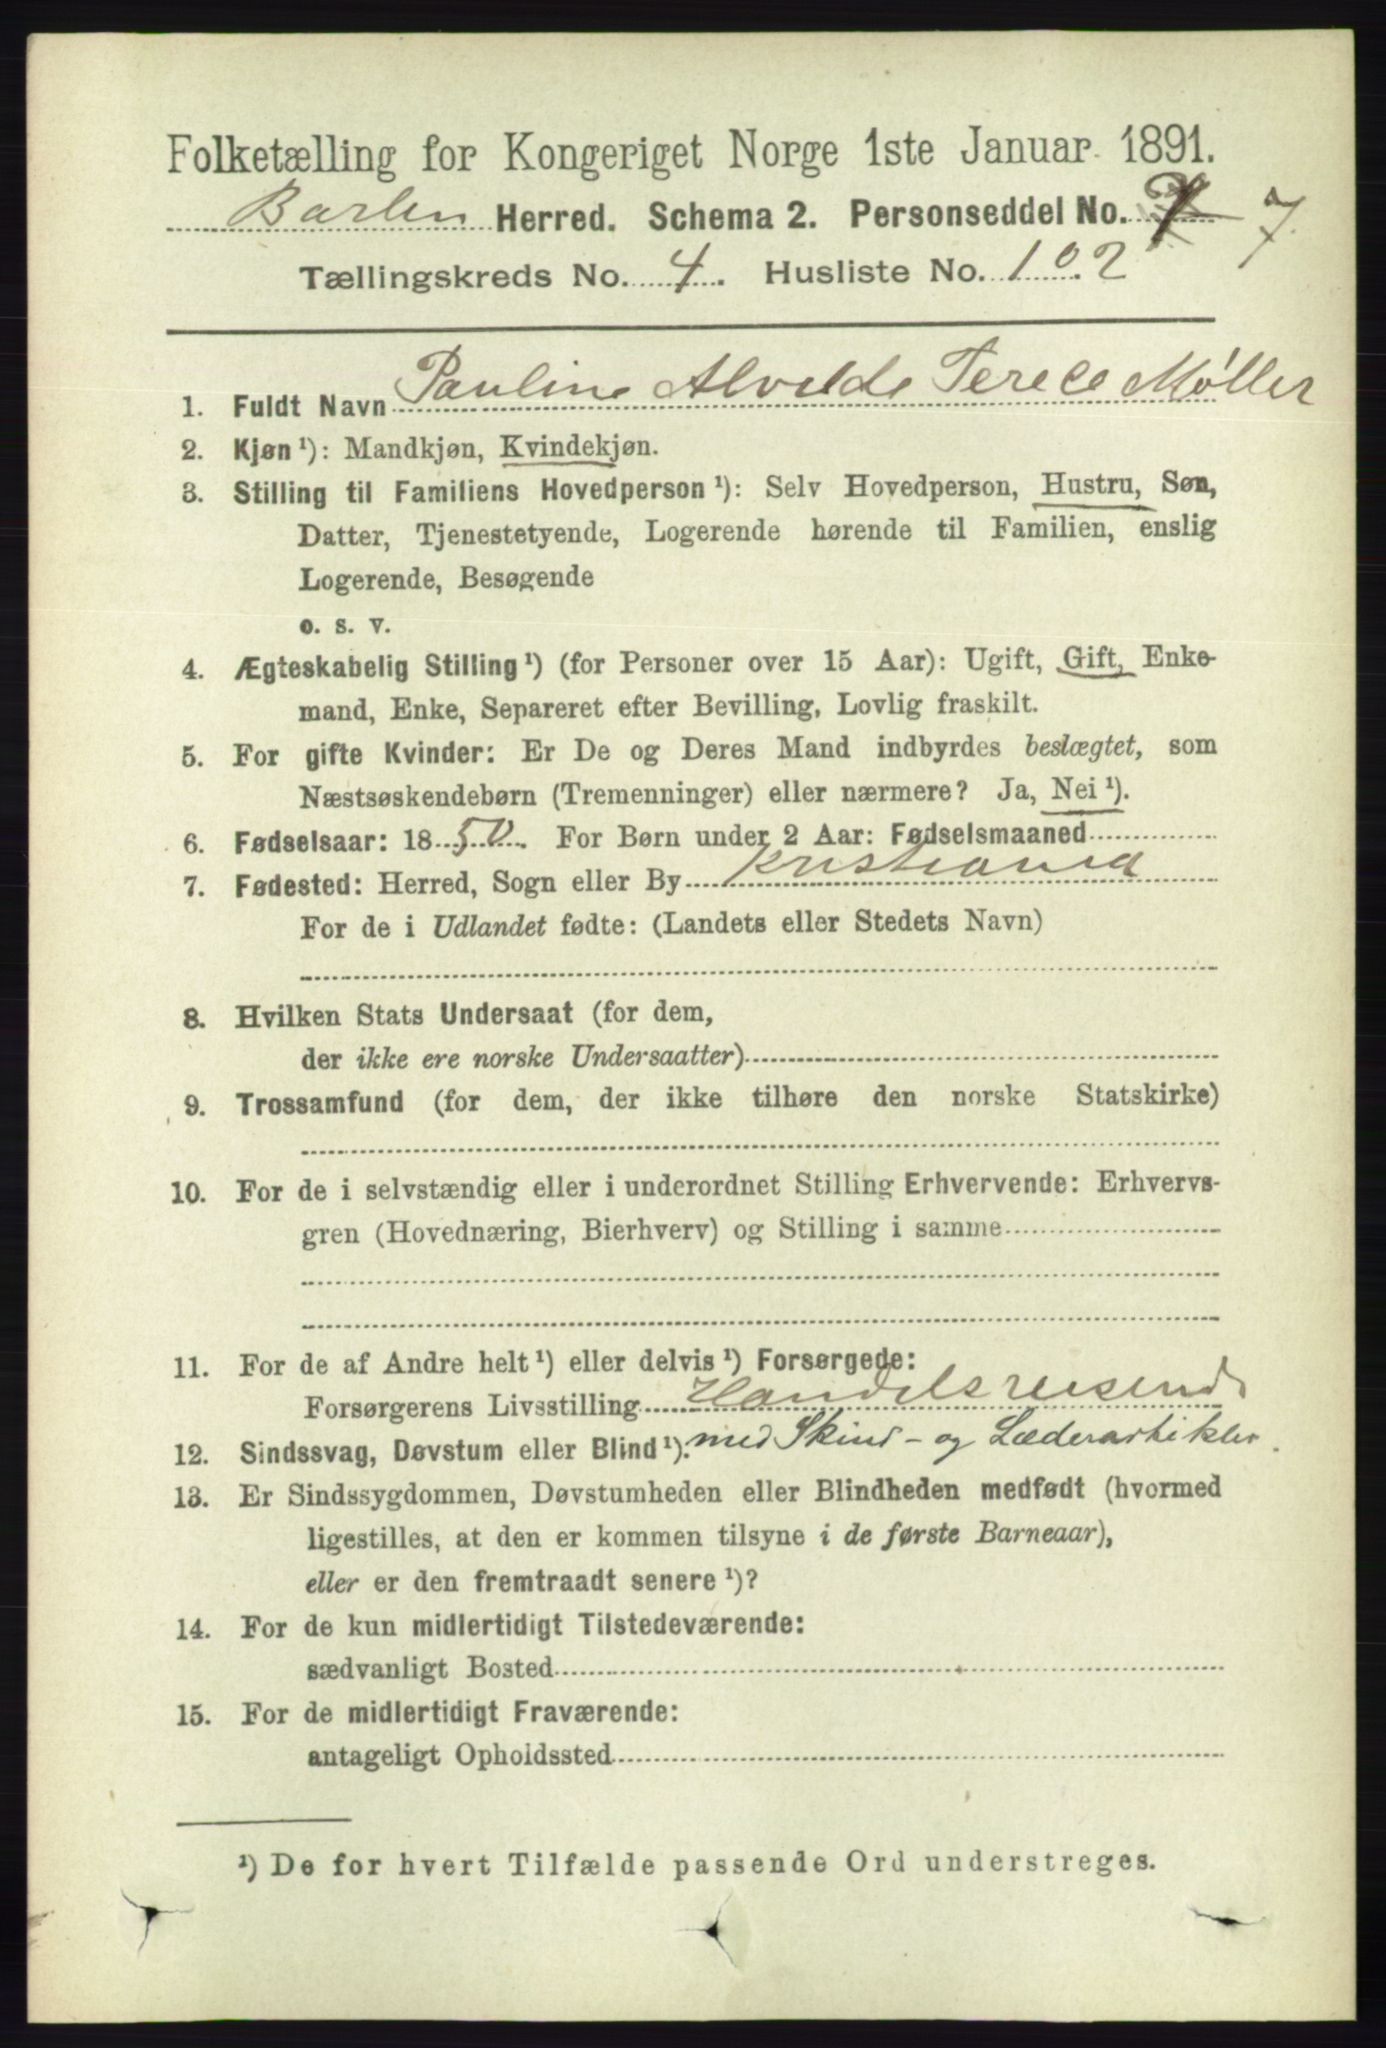 Folketælling for Kongeriget Norge 1ste Januar 1891.
Barlen Herred. Schema 2. Personseddel No. 7
Tællingskreds No. 4. Husliste No. 102
1. Fuldt Navn Pauline Alvilde Terese Møller
2. Kjøn ¹): Mandkjøn, Kvindekjøn.
3. Stilling til Familiens Hovedperson ¹): Selv Hovedperson, Hustru, Søn,
Datter, Tjenestetyende, Logerende hørende til Familien, enslig
Logerende, Besøgende
o. s. v.
4. Ægteskabelig Stilling ¹) (for Personer over 15 Aar): Ugift, Gift, Enke-
mand, Enke, Separeret efter Bevilling, Lovlig fraskilt.
5. For gifte Kvinder: Er De og Deres Mand indbyrdes beslægtet, som
Næstsøskendebørn (Tremenninger) eller nærmere? Ja, Nei ¹).
6. Fødselsaar: 1850. For Børn under 2 Aar: Fødselsmaaned
7. Fødested: Herred, Sogn eller By Kristiania
For de i Udlandet fødte: (Landets eller Stedets Navn)
8. Hvilken Stats Undersaat (for dem,
der ikke ere norske Undersaatter)
9. Trossamfund (for dem, der ikke tilhøre den norske Statskirke)
10. For de i selvstændig eller i underordnet Stilling Erhvervende: Erhvervs-
gren (Hovednæring, Bierhverv) og Stilling i samme
11. For de af Andre helt ¹) eller delvis ¹) Forsørgede:
Forsørgerens Livsstilling Handelsreisende
12. Sindssvag, Døvstum eller Blind ¹). med Skind- og Læderartikler.
13. Er Sindssygdommen, Døvstumheden eller Blindheden medfødt (hvormed
ligestilles, at den er kommen tilsyne i de første Barneaar),
eller er den fremtraadt senere ¹)?
14. For de kun midlertidigt Tilstedeværende:
sædvanligt Bosted
15. For de midlertidigt Fraværende:
antageligt Opholdssted
¹) De for hvert Tilfælde passende Ord understreges.